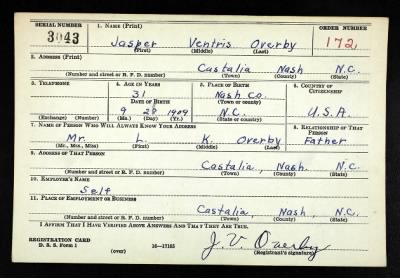 SERIAL NUMBER 1. NAME (Print) ORDER NUMBER
3043 Jasper Ventris Overby 172
(First) (Middle) (Last)
2. ADDRESS (Print)
Castalia Nash N.C.
(Number and street or R. F. D. number) (Town) (County) (State)
3. TELEPHONE 4. AGE IN YEARS 5. PLACE OF BIRTH 6. COUNTRY OF CITIZENSHIP
31 Nash Co.
DATE OF BIRTH (Town or county)
9 28 1909 N.C. U.S.A.
(Exchange) (Number) (Mo.) (Day) (Yr.) (State or country)
7. NAME OF PERSON WHO WILL ALWAYS KNOW YOUR ADDRESS 8. RELATIONSHIP OF THAT PERSON
Mr. L. K. Overby Father
(Mr., Mrs., Miss) (First) (Middle) (Last)
9. ADDRESS OF THAT PERSON
Castalia, Nash. N.C.
(Number and street or R. F. D. number) (Town) (County) (State)
10. EMPLOYER'S NAME
Self
11. PLACE OF EMPLOYMENT OR BUSINESS
Castalia, Nash, N.C.
(Number and street or R. F. D. number) (Town) (County) (State)
I AFFIRM THAT I HAVE VERIFIED ABOVE ANSWERS AND THAT THEY ARE TRUE.
REGISTRATION CARD J. V. Overby
D. S. S. Form 1 (over) 16-17105 (Registrant's signature)